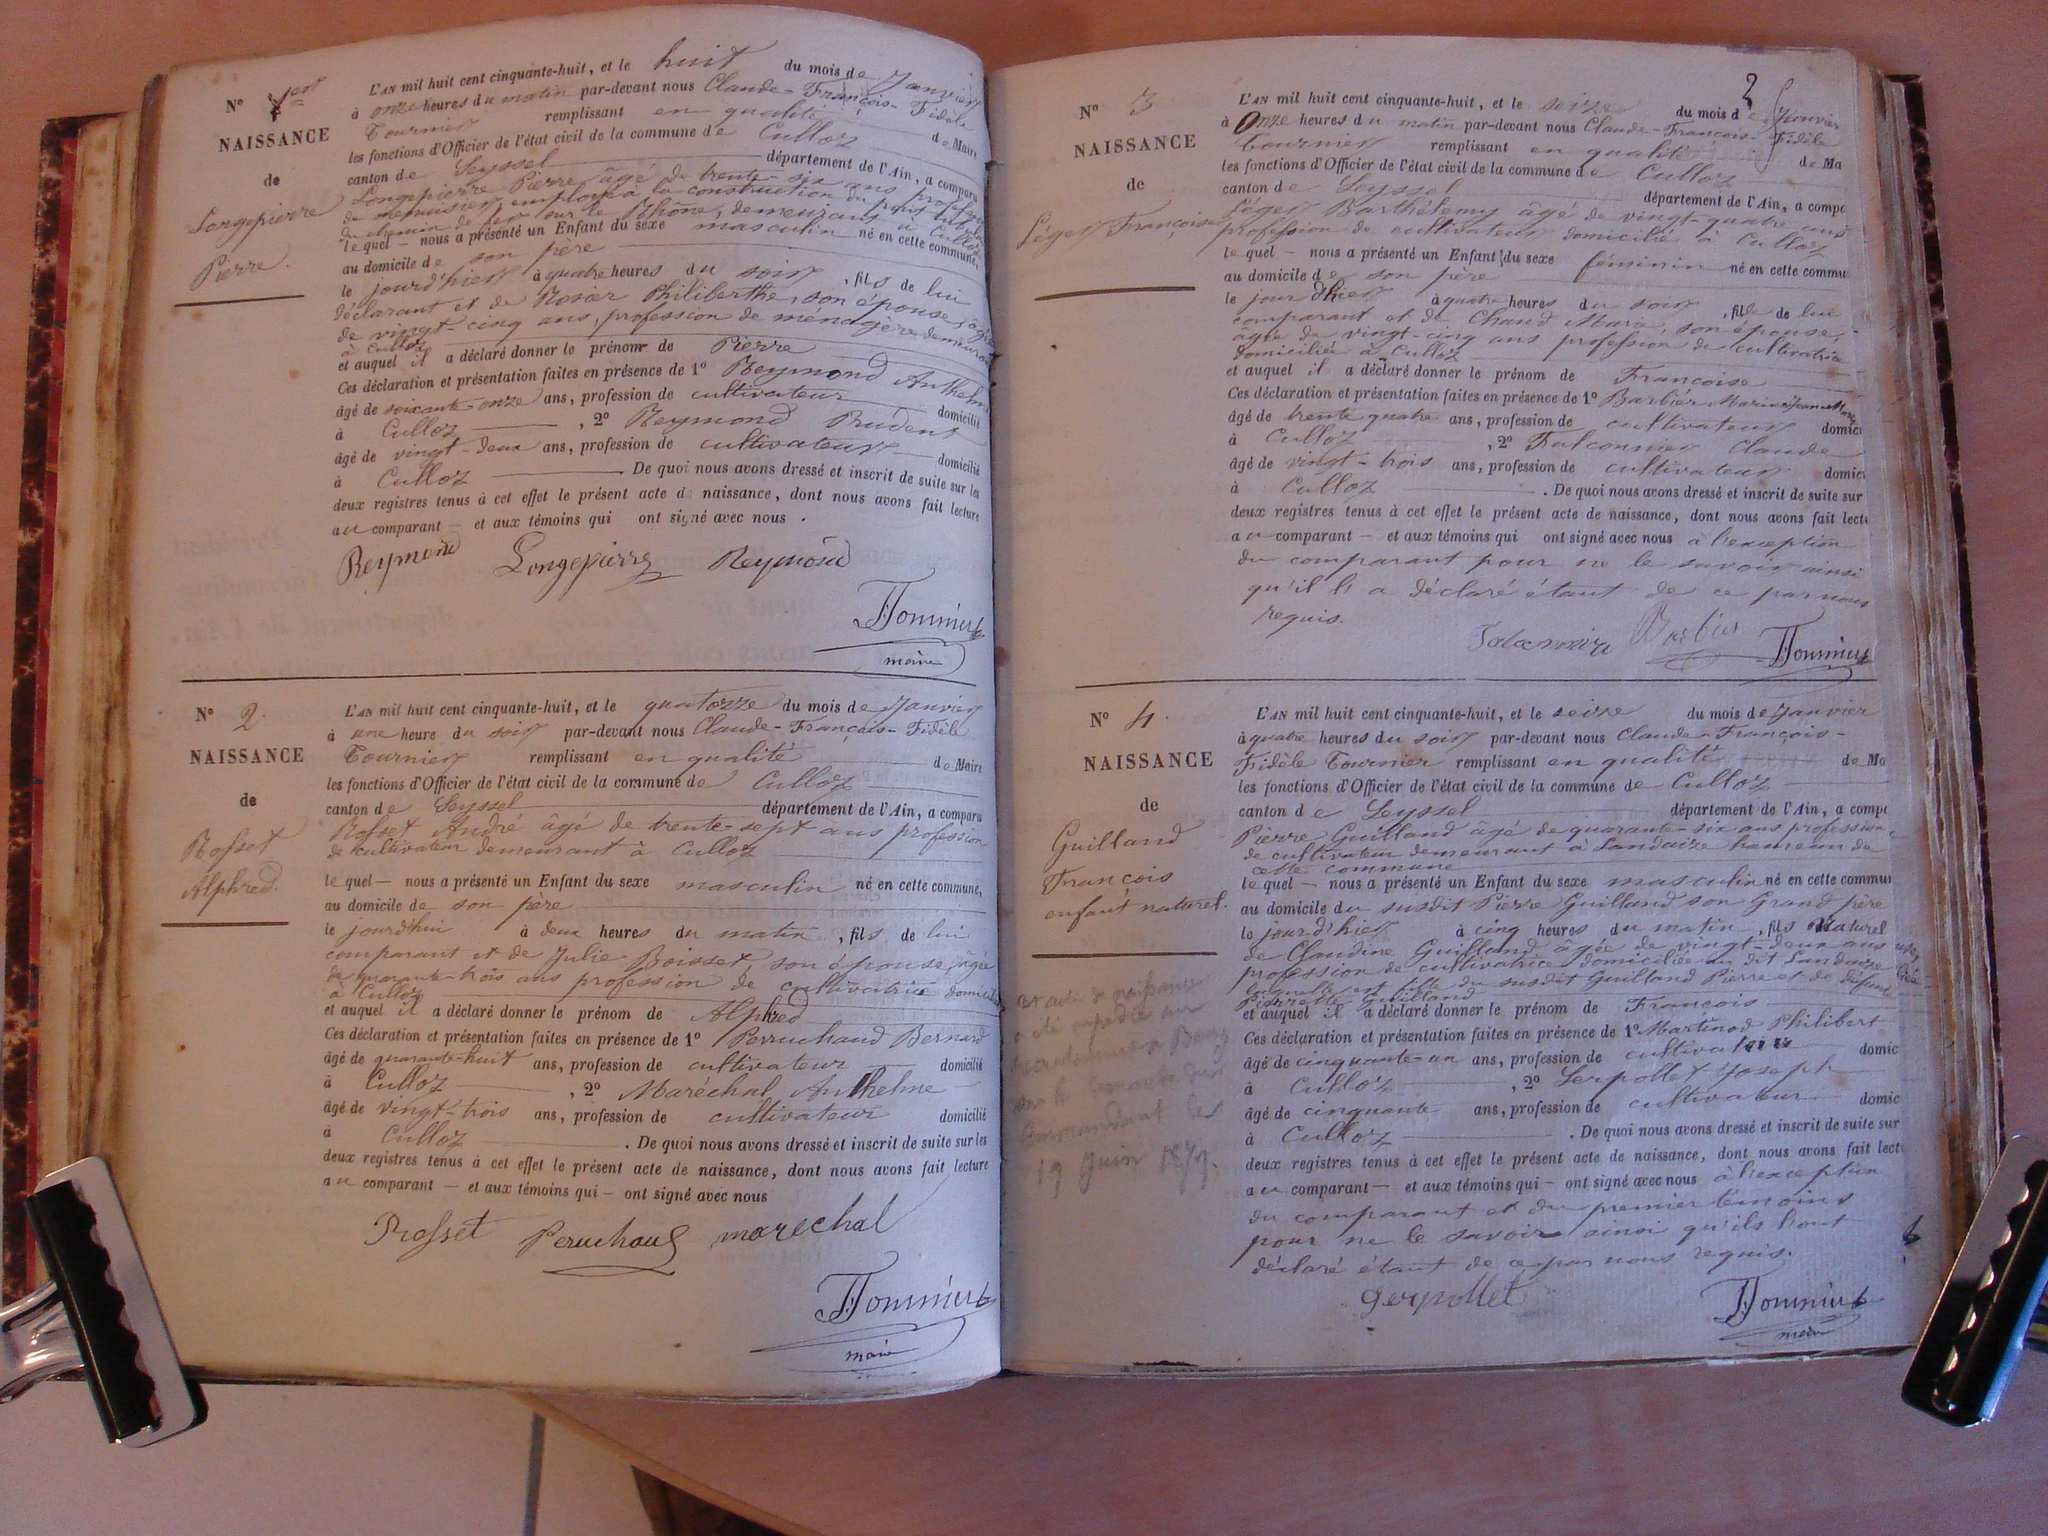 N° 1er
NAISSANCE
de
Longepierre
Pierre.
L'AN mil huit cent cinquante-huit, et le huit du mois de Janvier
à onze heures du matin par-devant nous Claude-François-Fidèle
Tournier remplissant en qualité de Maire
les fonctions d'Officier de l'état civil de la commune de Culloz
canton de Seyssel département de l'Ain, a comparu
Longepierre Pierre âgé de trente-six ans profession
de menuisier employé à la construction du pont
du chemin de fer sur le Rhône, demeurant à Culloz
lequel — nous a présenté un Enfant du sexe masculin né en cette commune,
au domicile de son père
le jourd'hier à quatre heures du soir, fils de lui
déclarant et de Rosier Philiberthe, son épouse, âgée
de vingt-cinq ans, profession de ménagère demeurant
à Culloz
et auquel il a déclaré donner le prénom de Pierre
Ces déclaration et présentation faites en présence de 1° Reymond Anthelme
âgé de soixante-onze ans, profession de cultivateur domicilié
à Culloz, 2° Reymond Prudent
âgé de vingt-deux ans, profession de cultivateur domicilié
à Culloz. De quoi nous avons dressé et inscrit de suite sur les
deux registres tenus à cet effet le présent acte de naissance, dont nous avons fait lecture
au comparant — et aux témoins qui ont signé avec nous.
Reymond Longepierre Reymond
Tournier
maire
N° 2.
NAISSANCE
de
Rosset
Alphred.
L'AN mil huit cent cinquante-huit, et le quatorze du mois de Janvier
à une heure du soir par-devant nous Claude-François-Fidèle
Tournier remplissant en qualité de Maire
les fonctions d'Officier de l'état civil de la commune de Culloz
canton de Seyssel département de l'Ain, a comparu
Rosset André âgé de trente-sept ans profession
de cultivateur demeurant à Culloz
lequel — nous a présenté un Enfant du sexe masculin né en cette commune,
au domicile de son père
le jourd'hui à deux heures du matin, fils de lui
comparant et de Julie Boisset son épouse, âgée
de quarante-trois ans profession de cultivatrice domiciliée
à Culloz
et auquel il a déclaré donner le prénom de Alphred
Ces déclaration et présentation faites en présence de 1° Perruchaud Bernard
âgé de quarante-huit ans, profession de cultivateur domicilié
à Culloz, 2° Maréchal Anthelme
âgé de vingt-trois ans, profession de cultivateur domicilié
à Culloz. De quoi nous avons dressé et inscrit de suite sur les
deux registres tenus à cet effet le présent acte de naissance, dont nous avons fait lecture
au comparant — et aux témoins qui — ont signé avec nous
Rosset Peruchaud marechal
Tournier
maire
2
N° 3
NAISSANCE
de
Léger Françoise
L'AN mil huit cent cinquante-huit, et le seize du mois de Janvier
à Onze heures du matin par-devant nous Claude-François-Fidèle
Tournier remplissant en qualité de Ma
les fonctions d'Officier de l'état civil de la commune de Culloz
canton de Seyssel département de l'Ain, a compa
Léger Barthélemy âgé de vingt-quatre ans
profession de cultivateur domicilié à Culloz
lequel — nous a présenté un Enfant du sexe féminin né en cette commu
au domicile de son père
le jour d'hier à quatre heures du soir, fille de lui
comparant et de Chand Marie, son épouse,
âgée de vingt-cinq ans profession de cultivatrice
domiciliée à Culloz
et auquel il a déclaré donner le prénom de Françoise
Ces déclaration et présentation faites en présence de 1° Barbier Marin
âgé de trente quatre ans, profession de cultivateur domici
à Culloz, 2° Falconnier Claude
âgé de vingt-trois ans, profession de cultivateur domici
à Culloz. De quoi nous avons dressé et inscrit de suite sur
deux registres tenus à cet effet le présent acte de naissance, dont nous avons fait lectu
au comparant — et aux témoins qui ont signé avec nous à l'exception
du comparant pour ne le savoir ainsi
qu'il l'a déclaré étant de ce par nous
requis.
Barbier Tournier
N° 4.
NAISSANCE
de
Guilland
François
enfant naturel.
19 Juin 1879.
L'AN mil huit cent cinquante-huit, et le seize du mois de Janvier
à quatre heures du soir par-devant nous Claude-François-
Fidèle Tournier remplissant en qualité de Ma
les fonctions d'Officier de l'état civil de la commune de Culloz
canton de Seyssel département de l'Ain, a compa
Pierre Guilland âgé de quarante-six ans profession
de cultivateur demeurant à Landaize hameau de
cette commune
lequel — nous a présenté un Enfant du sexe masculin né en cette commun
au domicile du susdit Pierre Guilland son Grand père
le jourd'hier à cinq heures du matin, fils Naturel
de Claudine Guilland âgée de vingt-deux ans
profession de cultivatrice domiciliée au dit Landaize
laquelle est fille du susdit Guilland Pierre et de défunte
Pierrette Guilland
et auquel il a déclaré donner le prénom de François
Ces déclaration et présentation faites en présence de 1° Martinod Philibert
âgé de cinquante-un ans, profession de cultivateur domic
à Culloz, 2° Serpollet Joseph
âgé de cinquante ans, profession de cultivateur domic
à Culloz. De quoi nous avons dressé et inscrit de suite sur
deux registres tenus à cet effet le présent acte de naissance, dont nous avons fait lect
au comparant — et aux témoins qui — ont signé avec nous à l'exception
du comparant et du premier témoins
pour ne le savoir ainsi qu'ils l'ont
déclaré étant de ce par nous requis.
Serpollet Tournier
maire